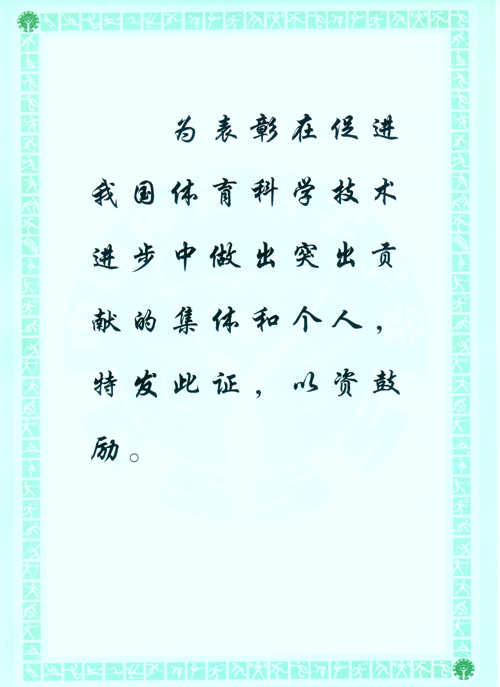 为表彰在促进
我国体育科学技术
进步中做出突出贡
献的集体和个人，
特发此证，以资鼓
励。